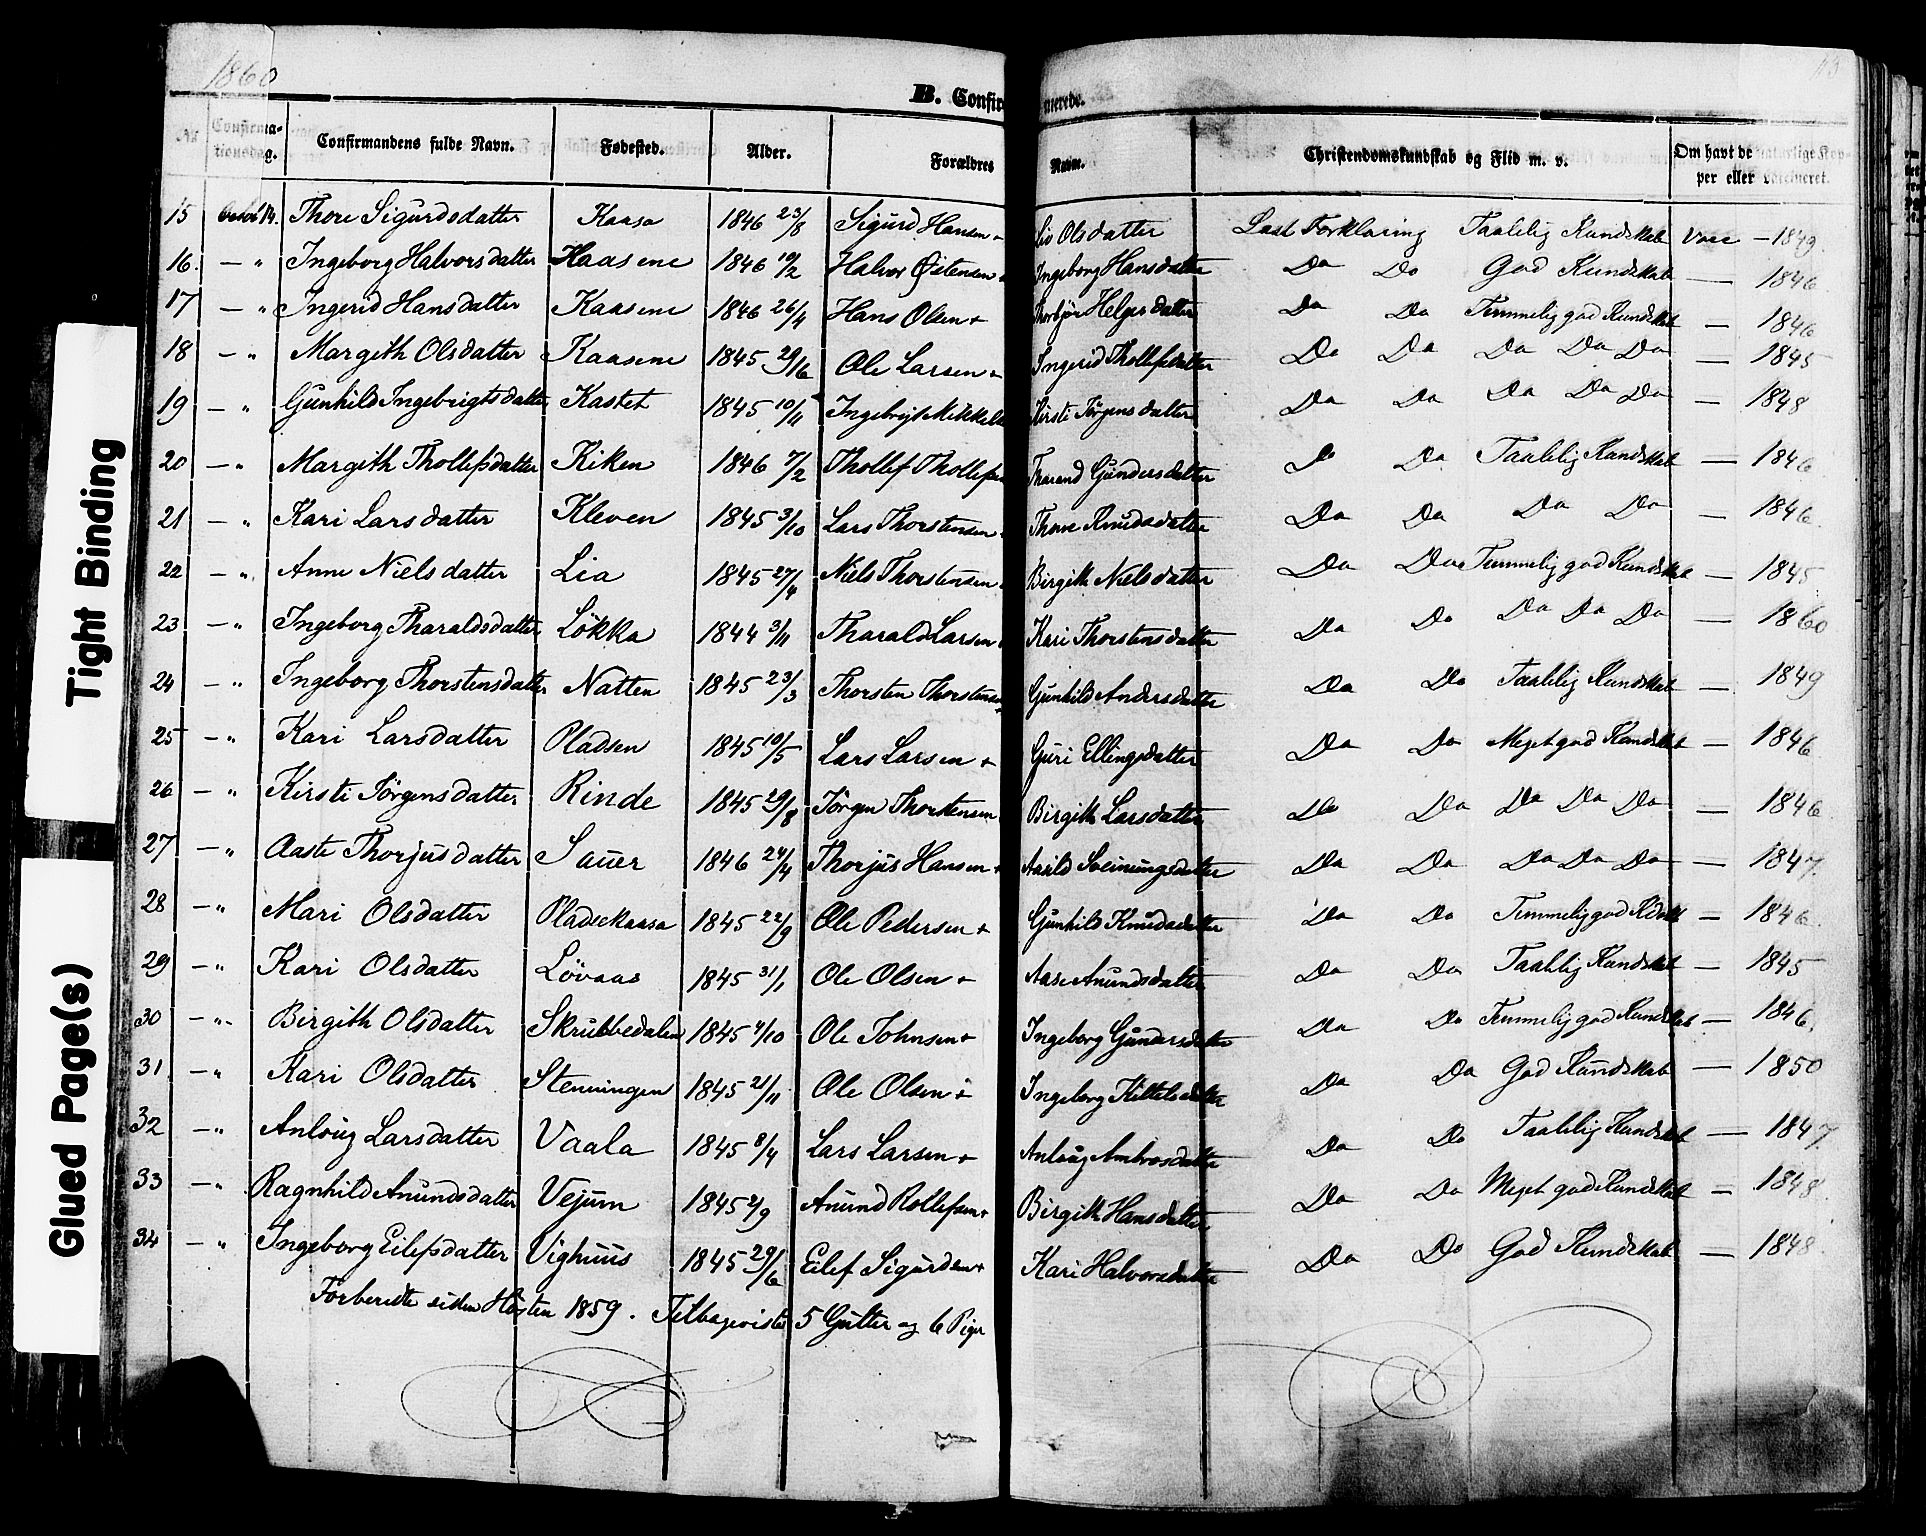 1860
B. Confirmerede.
No Confirmationsdag. Confirmandens fulde Navn. Fødested. Alder. Forældres Navn. Christendomskundskab og Flid m. v. Om havt de naturlige Kopper eller vaccineret.
15 Octob 14. Thore Sigurdsdatter Kaasa 1846 23/8 Sigurd Hansen + Liv Olsdatter Læst Forklaring Taalelig Kundskab Vacc — 1849.
16. — " Ingeborg Halvorsdatter Kaasene 1846 10/2 Halvor Østensen + Ingeborg Hansdatter Do Do God Kundskab — 1846.
17 — " Ingerid Hansdatter Kaasene 1846 26/4 Hans Olsen + Thorbjør Helgesdatter Do Do Temmelig god Kundskab — 1846
18 — " Margith Olsdatter Kaasene 1845 29/6 Ole Larsen + Ingerid Thollefsdatter Do Do Do Do Do — 1845
19 — " Gunhild Ingebrigtsdatter Kastet 1845 10/11 Ingebrigt Mikkels Kirsti Jørgensdatter Do Do Do Do Do — 1848
20 — " Margith Thollefsdatter Kiken 1846 7/2 Thollef Thollefsen Tharand Gundersdatter Do Do Taalelig Kundskab — 1846
21 — " Kari Larsdatter Kleven 1845 3/10 Lars Thorstensen + Thone Knudsdatter Do Do Do Do — 1846.
22 — " Anne Nielsdatter Lia 1845 27/4 Niels Thorstensen + Birgith Nielsdatter Do Do Temmelig god Kundskab — 1845
23 — " Ingeborg Tharaldsdatter Løkka 1844 3/11 Tharald Larsen + Kari Thorstensdatter Do Do Do Do Do — 1860
24 — " Ingeborg Thorstensdatter Natten 1845 23/3 Thorsten Thorstensen + Gunhild Andersdatter Do Do Taalelig Kundskab — 1849
25 — " Kari Larsdatter Pladsen 1845 10/5 Lars Larsen + Guri Ellingsdatter Do Do Meget god Kundskab — 1846
26 — " Kirsti Jørgensdatter Rinde 1845 29/8 Jørgen Thorstensen Birgith Larsdatter Do Do Do Do Do — 1846
27 — " Aaste Thorjusdatter Sauer 1846 24/4 Thorjus Hansen + Aasild Sveinungsdatter Do Do Do Do Do — 1847.
28 — " Mari Olsdatter Pladsekaasa 1845 22/9 Ole Pedersen + Gunhild Knudsdatter Do Do Temmelig god Kdskb — 1846.
29 — " Kari Olsdatter Løvaas 1845 31/1 Ole Olsen + Aase Anundsdatter Do Do Taalelig Kundskab — 1845
30 — " Birgith Olsdatter Skrubbedalen 1845 4/10 Ole Johnsen + Ingeborg Gundersdatter Do Do Temmelig god Kundskab — 1846.
31 — " Kari Olsdatter Stenningen 1845 21/11 Ole Olsen + Ingeborg Kittelsdatter Do Do God Kundskab — 1850
32 — " Anlaug Larsdatter Vaala 1845 8/4 Lars Larsen + Anlaug Ambrosdatter Do Do Taalelig Kundskab — 1847.
33 — " Ragnhild Anundsdatter Vejum 1845 2/9 Anund Rollefsen + Birgith Hansdatter Do Do Meget god Kundskab — 1848.
34 — " Ingeborg Eilefsdatter Vighuus 1845 29/6 Eilef Sigurdsen + Kari Halvorsdatter Do Do God Kundskab — 1848.
Forberedte siden Høsten 1859. Tilbageviste 5 Gutter og 6 Piger
Tight Binding
Glued Page(s)